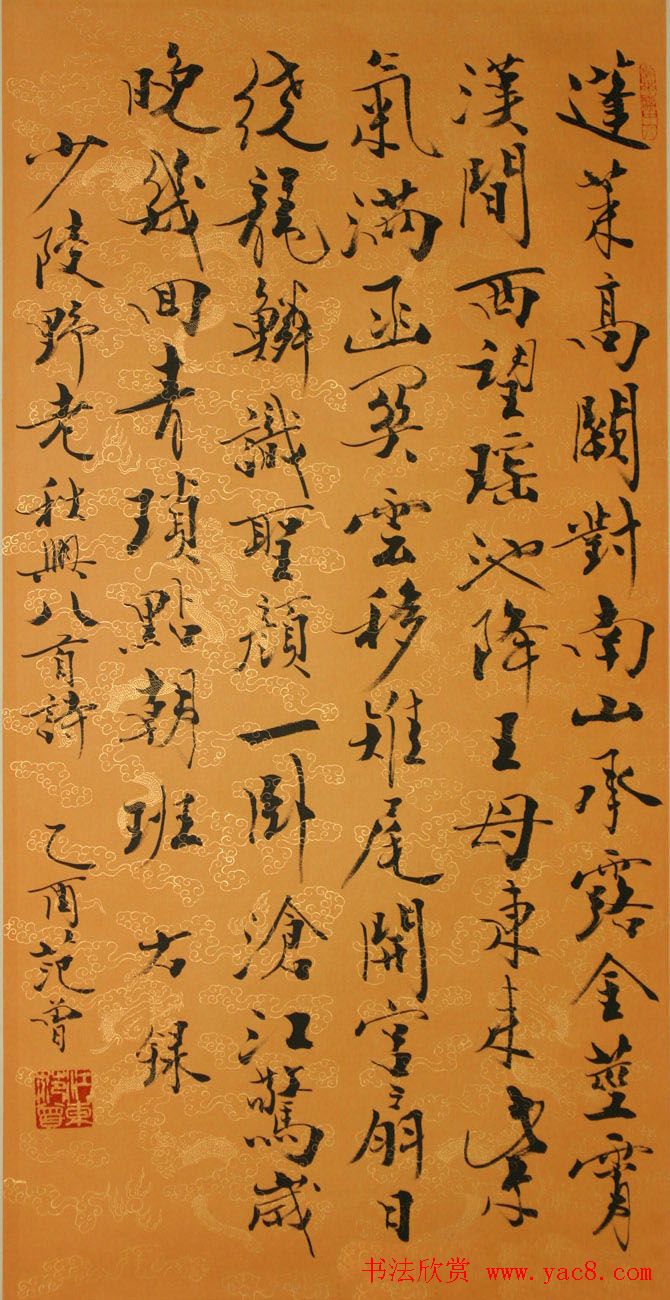 蓬莱高闕對南山承露金莖霄
漢間西望瑶池降王母東来紫
氣满函関雲移雉尾開宫扇日
绕龍鱗識聖顔一卧滄江驚歲
晚幾回青瑣點朝班 右録
少陵野老秋興八首詩 乙酉范曾
江東范曾
书法欣赏 www.yac8.com